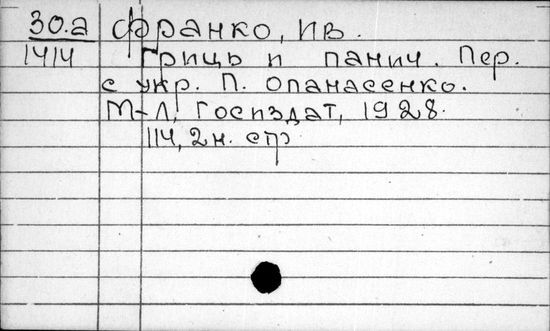 30.а Франко, Ив.
1414 Гриць и панич. Пер.
с укр. П. Опанасенко.
М-Л, Госиздат, 1928.
114, 2 н. стр.